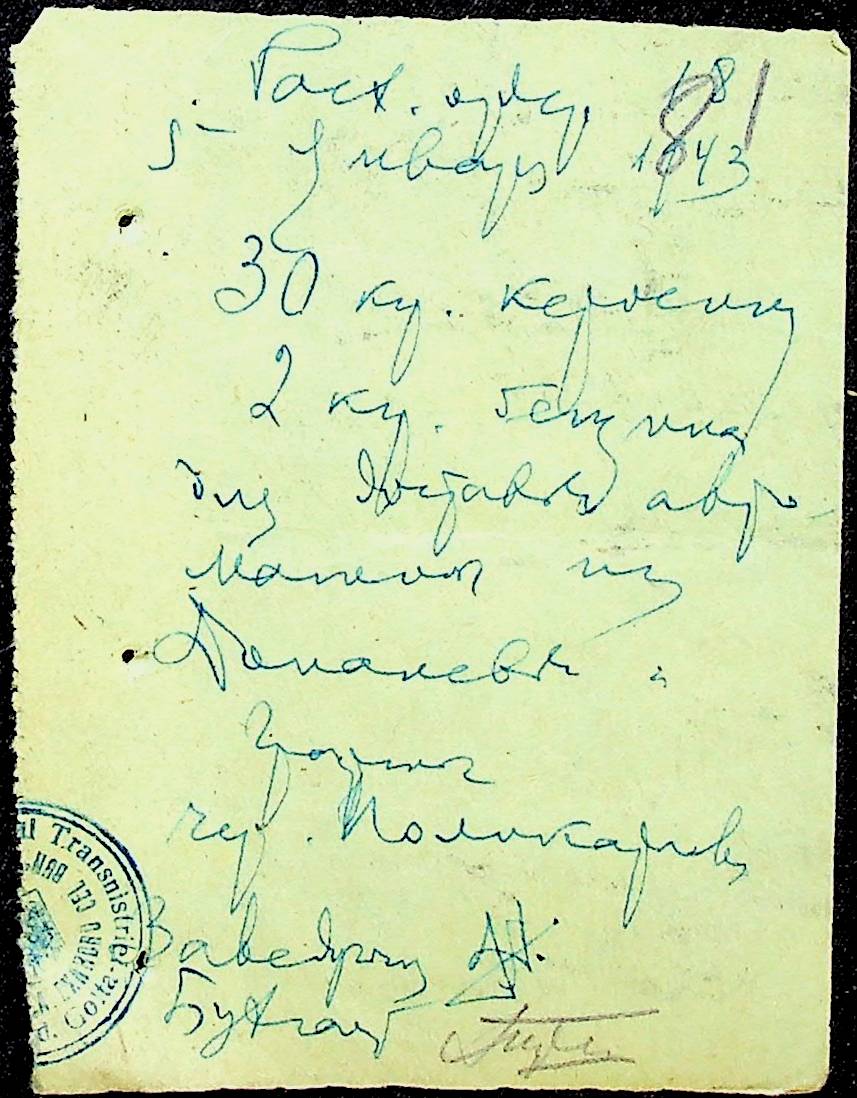 Расх. ордер 18
81
5 - Января 1943
30 кг. керосину
2 кг. бензина
для доставки авто-
машины из
Доманевки и
чер. Поликарпов
Заведующ
Бухгалт
Transnistriei
Golta